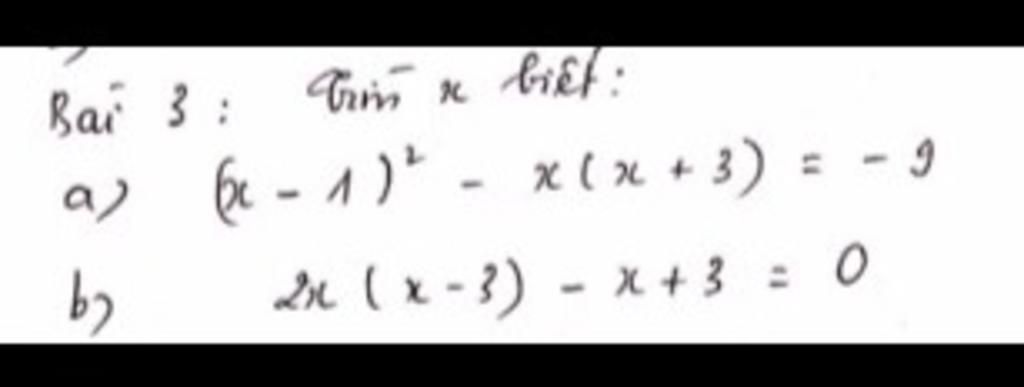 Bài 3 : Tìm x biết :
a) (x - 1)² - x(x + 3) = - 9
b) 2x (x - 3) - x + 3 = 0